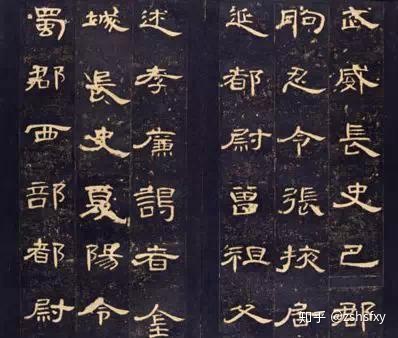 武威長史巴郡
朐忍令張掖居
延都尉曾祖父
述孝廉謁者金
城長史夏陽令
蜀郡西部都尉
知乎 @zshsfxy